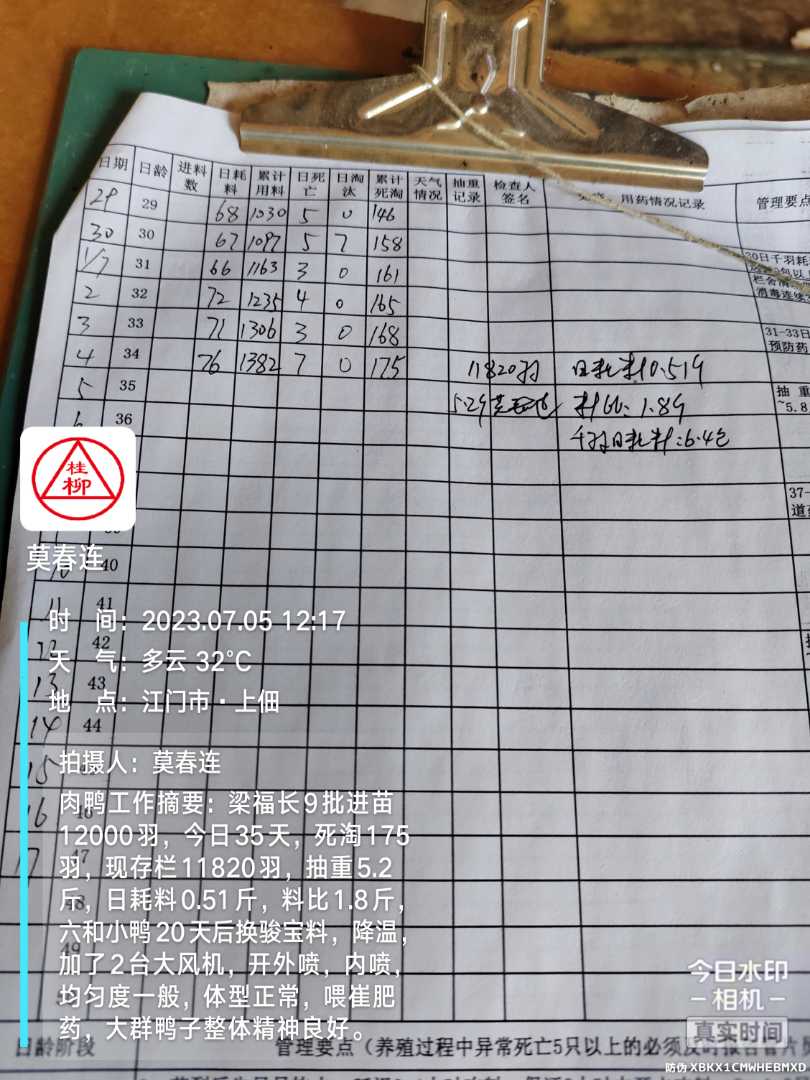 日期 日龄 进料数 日耗料 累计用料 日死亡 日淘汰 累计死淘 天气情况 抽重记录 检查人签名 用药情况记录 管理要点
29 29 68 1030 5 0 146
30 30 67 1097 5 7 158
1/7 31 66 1163 3 0 161
2 32 72 1235 4 0 165
3 33 71 1306 3 0 168
4 34 76 1382 7 0 175 11820羽 日耗料0.51斤
5 35 5.2斤 料比:1.8斤
6 36 千羽日耗料:6.4包
30日千羽耗
消毒连续
31-33日
预防药
抽重
~5.8
37-
道
40
11 41
12 42
13 43
14 44
15
16
17 47
49
桂柳
莫春连
时 间：2023.07.05 12:17
天 气：多云 32℃
地 点：江门市·上佃
拍摄人：莫春连
肉鸭工作摘要：梁福长9批进苗
12000羽，今日35天，死淘175
羽，现存栏11820羽，抽重5.2
斤，日耗料0.51斤，料比1.8斤，
六和小鸭20天后换骏宝料，降温，
加了2台大风机，开外喷，内喷，
均匀度一般，体型正常，喂崔肥
药，大群鸭子整体精神良好。
今日水印
相机
真实时间
日龄阶段 管理要点（养殖过程中异常死亡5只以上的必须及时报告
防伪 XBKX1CMWHEBMXD